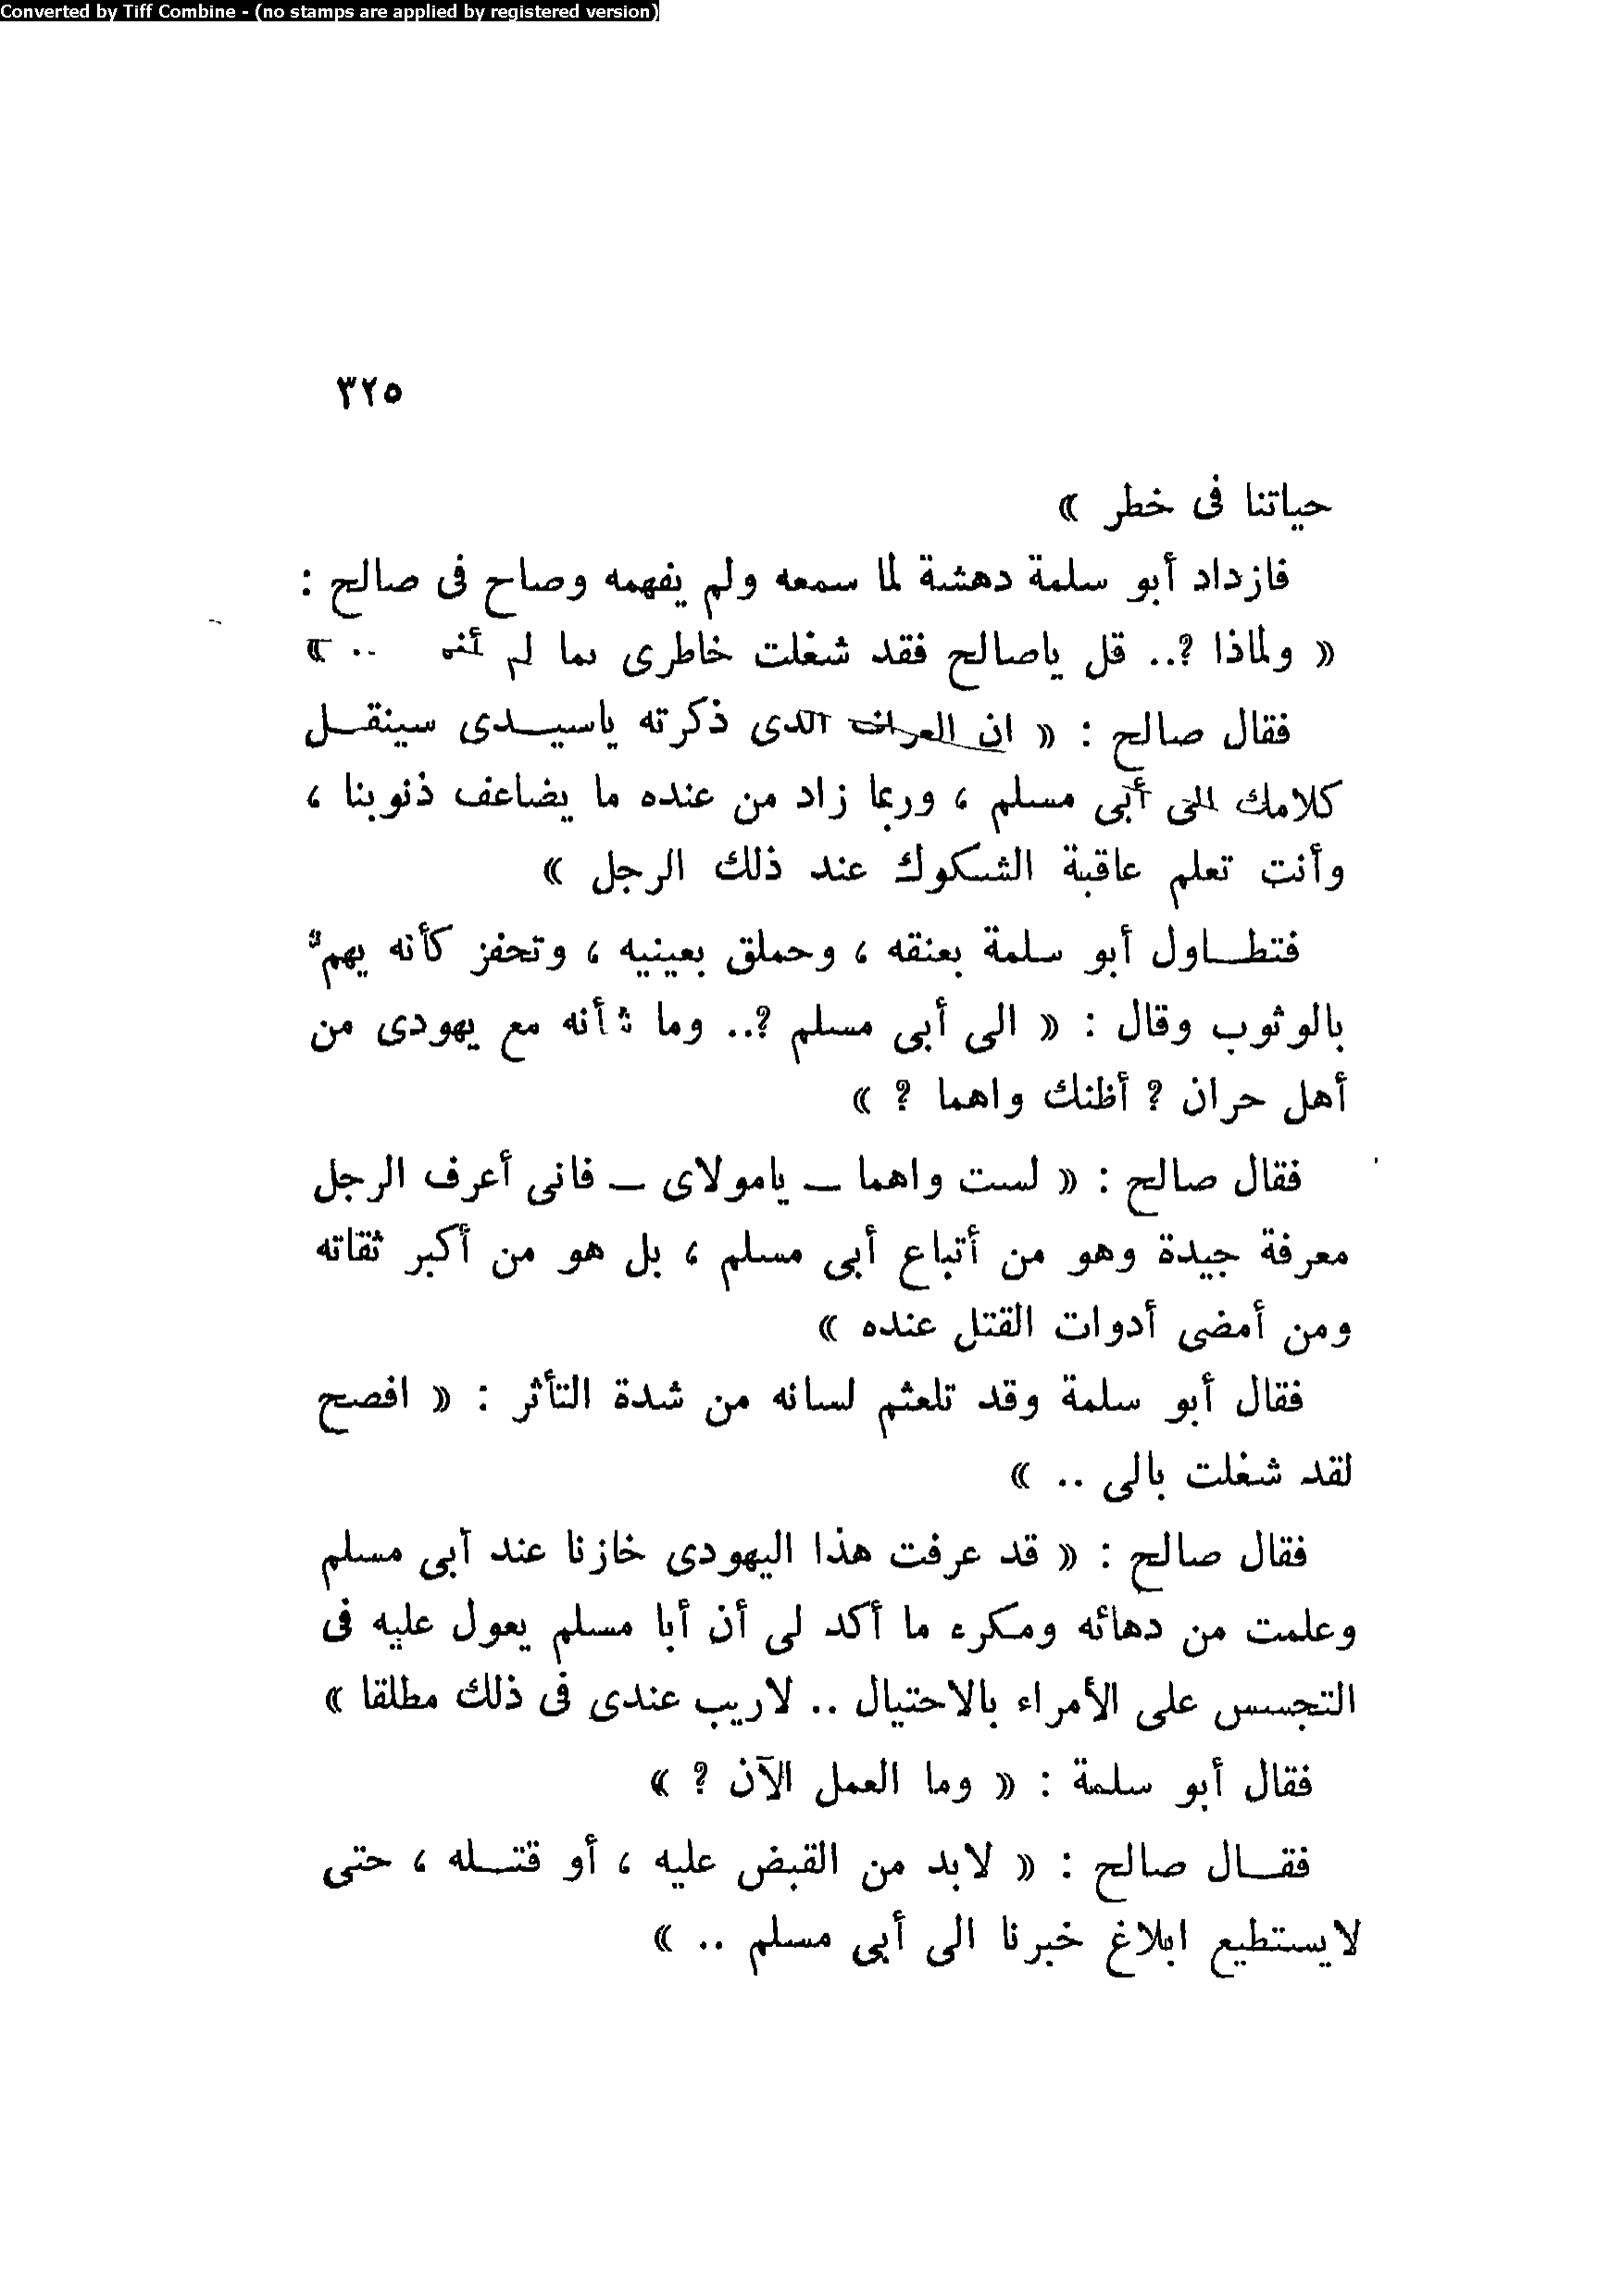 Converted by Tiff Combine - (no stamps are applied by registered version)
٣٢٥
حياتنا فى خطر »
فازداد أبو سلمة دهشة لما سمعه ولم يفهمه وصاح فى صالح :
« ولماذا ؟.. قل ياصالح فقد شغلت خاطرى بما لم .. »
فقال صالح : « ان العراف الذى ذكرته ياسيدى سينقل
كلامك الى أبى مسلم ، وربما زاد من عنده ما يضاعف ذنوبنا ،
وأنت تعلم عاقبة الشكوك عند ذلك الرجل »
فتطاول أبو سلمة بعنقه ، وحملق بعينيه ، وتحفز كأنه يهمّ
بالوثوب وقال : « الى أبى مسلم ؟.. وما شأنه مع يهودى من
أهل حران ؟ أظنك واهما ؟ »
فقال صالح : « لست واهما — يامولاى — فانى أعرف الرجل
معرفة جيدة وهو من أتباع أبى مسلم ، بل هو من أكبر ثقاته
ومن أمضى أدوات القتل عنده »
فقال أبو سلمة وقد تلعثم لسانه من شدة التأثر : « افصح
لقد شغلت بالى .. »
فقال صالح : « قد عرفت هذا اليهودى خازنا عند أبى مسلم
وعلمت من دهائه ومكره ما أكد لى أن أبا مسلم يعول عليه فى
التجسس على الأمراء بالاحتيال .. لاريب عندى فى ذلك مطلقا »
فقال أبو سلمة : « وما العمل الآن ؟ »
فقال صالح : « لابد من القبض عليه ، أو قتله ، حتى
لايستطيع ابلاغ خبرنا الى أبى مسلم .. »